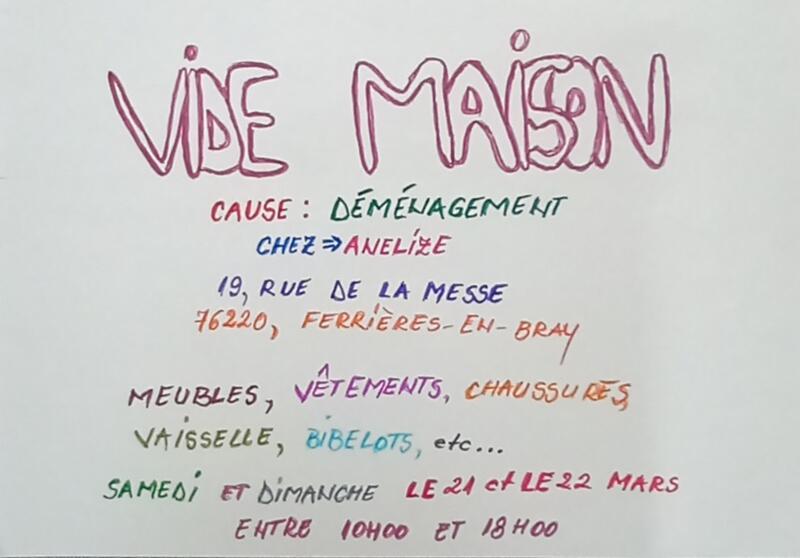 VIDE MAISON
CAUSE : DÉMÉNAGEMENT
CHEZ ⇒ ANELIZE
19, RUE DE LA MESSE
76220, FERRIÈRES-EN-BRAY
MEUBLES, VÊTEMENTS, CHAUSSURES,
VAISSELLE, BIBELOTS, etc...
SAMEDI ET DIMANCHE LE 21 et LE 22 MARS
ENTRE 10H00 ET 18H00